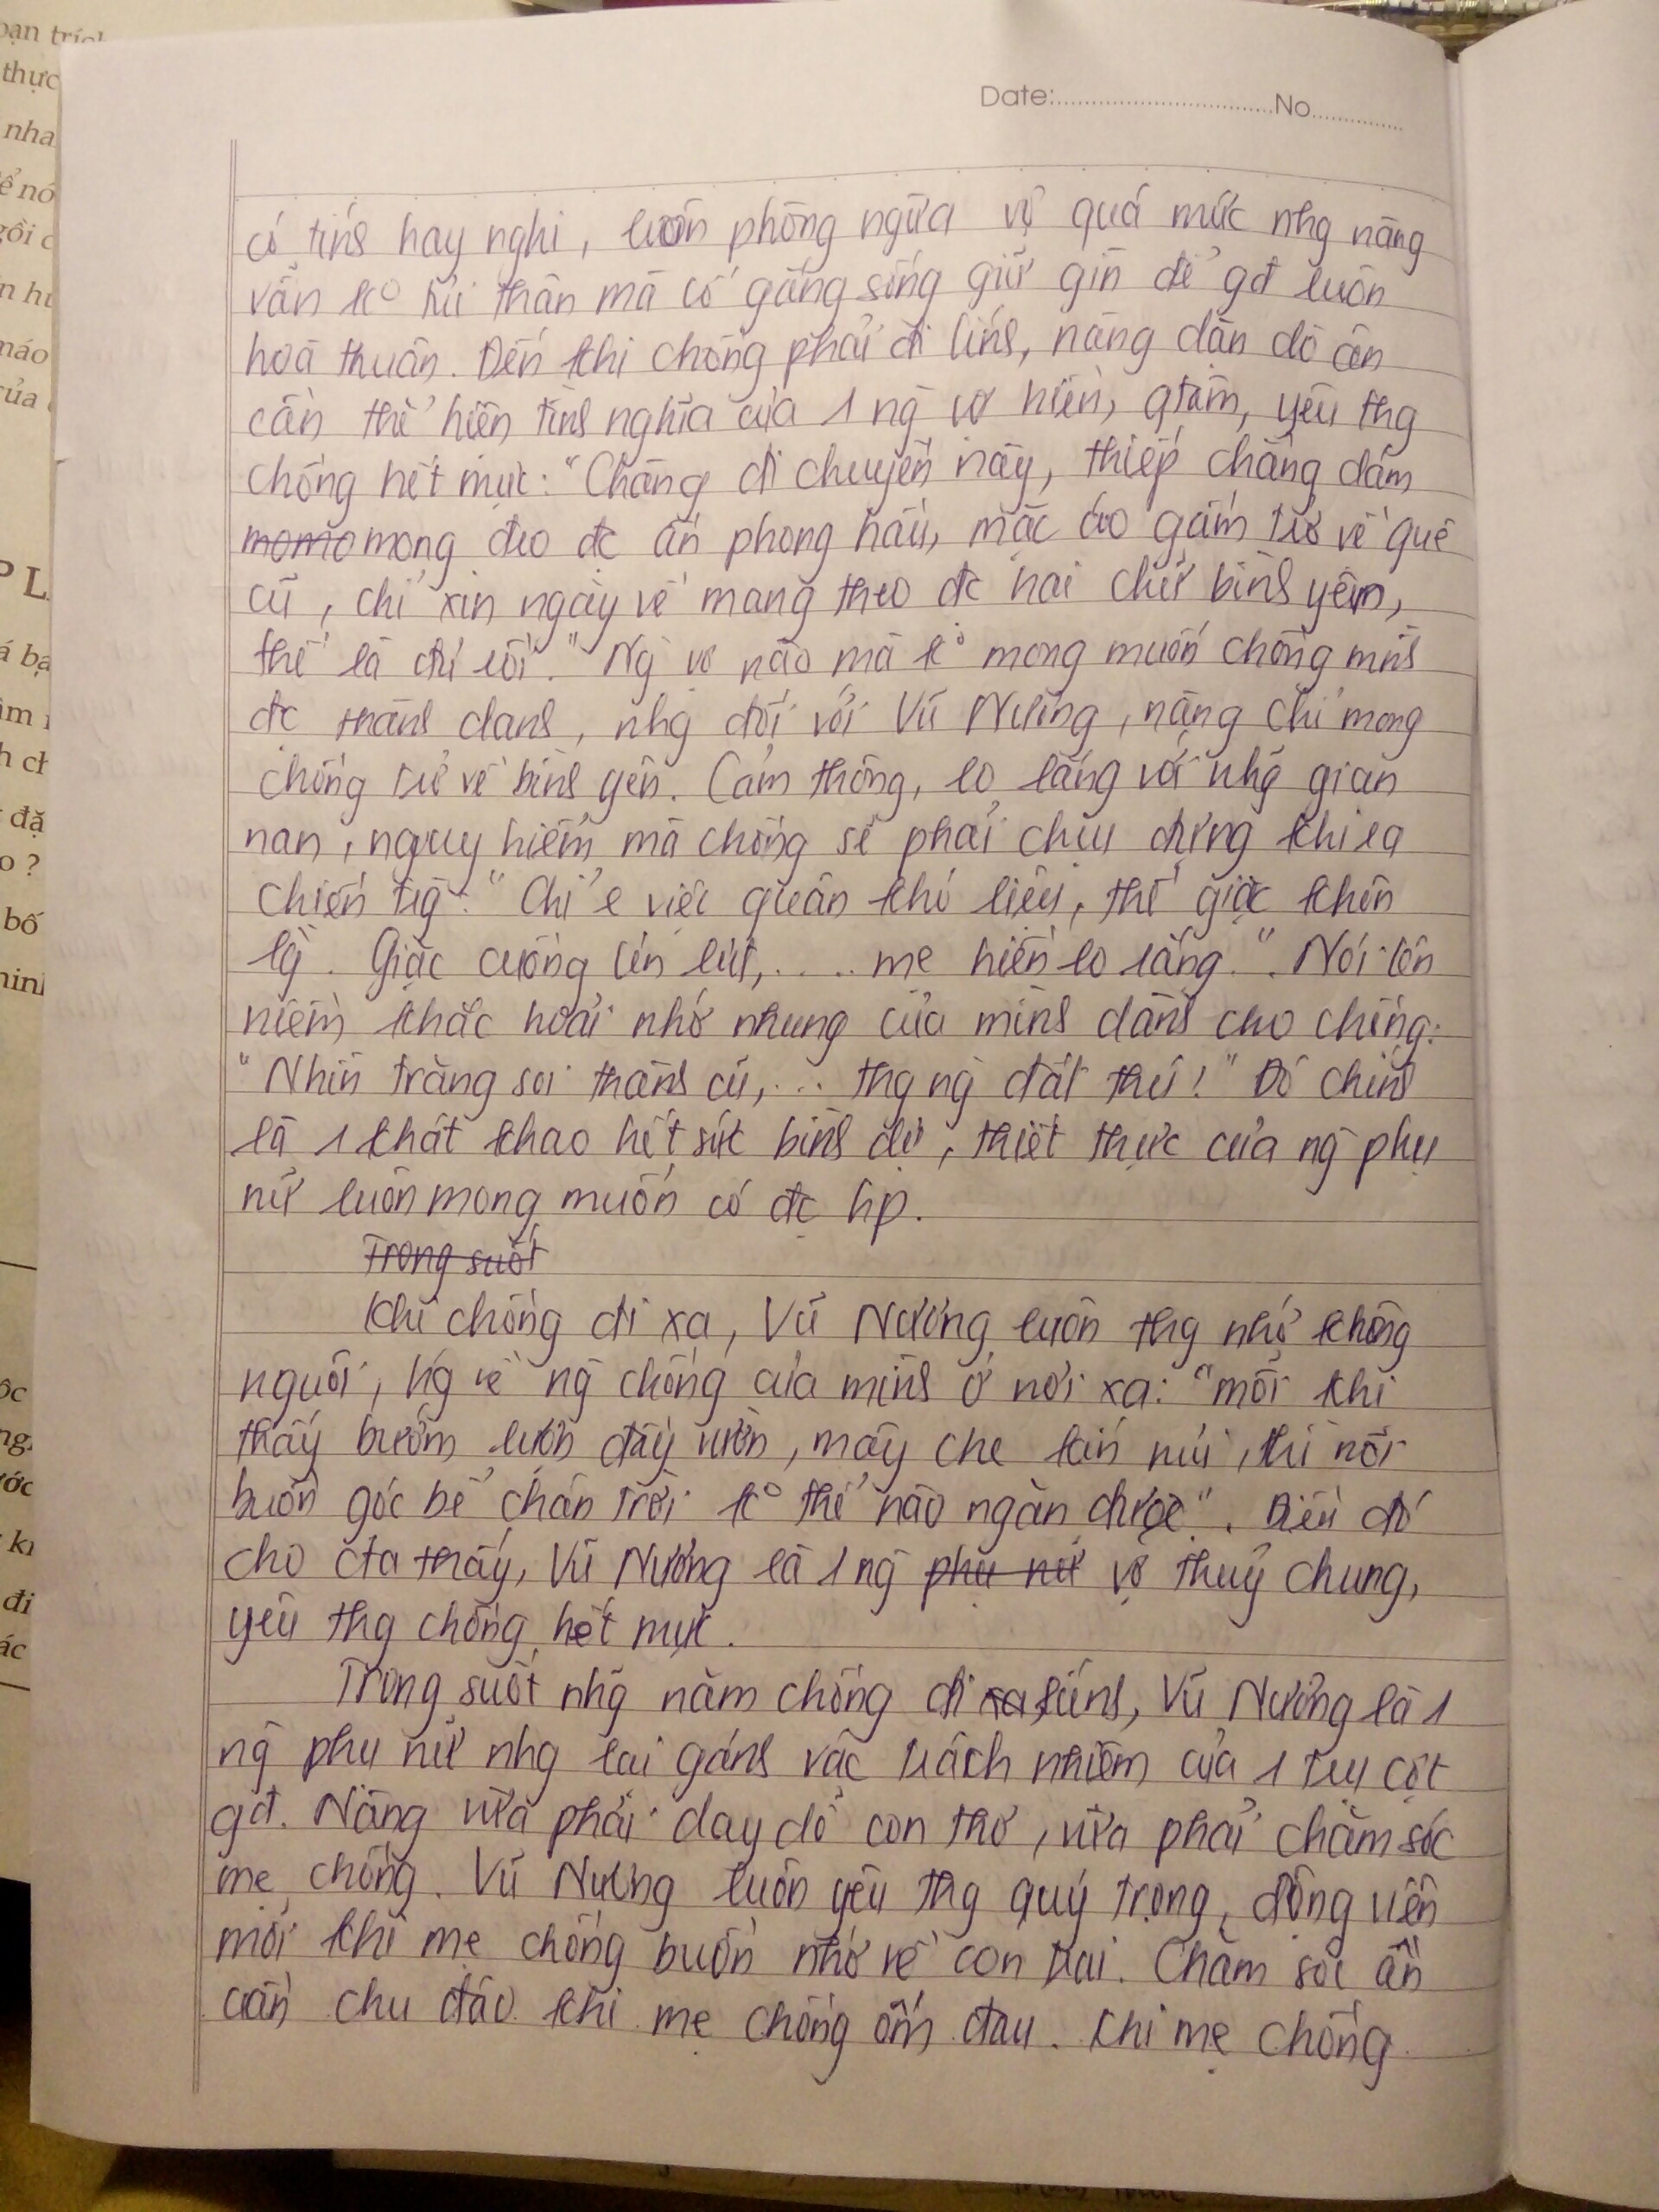 Date:................................No..............
có tính hay nghi, luôn phòng ngừa vợ quá mức nhg nàng
vẫn ko tủi thân mà cố gắng sống giữ gìn để gđ luôn
hoà thuận. Đến khi chồng phải đi lính, nàng dặn dò ân
cần thể hiện tình nghĩa của 1 ng vợ hiền, qtâm, yêu thg
chồng hết mực: "Chàng đi chuyến này, thiếp chẳng dám
mong đeo đc ấn phong hầu, mặc áo gấm trở về quê
cũ, chỉ xin ngày về mang theo đc hai chữ bình yên,
thế là đủ rồi." Ng vợ nào mà ko mong muốn chồng mình
đc thành danh, nhg đối với Vũ Nương, nàng chỉ mong
chồng trở về bình yên. Cảm thông, lo lắng với nhg gian
nan, nguy hiểm mà chồng sẽ phải chịu đựng khi ra
chiến trg: "Chỉ e việc quân khó liệu, thế giặc khôn
lg. Giặc cuồng lẩn lút,.... mẹ hiền lo lắng." Nói lên
niềm khắc hoải nhớ nhung của mình dành cho chồng:
"Nhìn trăng soi thành cũ,... thg ng đất thú!" Đó chính
là 1 khát khao hết sức bình dị, thiết thực của ng phụ
nữ luôn mong muốn có đc hp.
Trong suốt
Khi chồng đi xa, Vũ Nương luôn thg nhớ không
nguôi, hg về ng chồng của mình ở nơi xa: "mỗi khi
thấy bướm lượn đầy vườn, mây che kín núi, thì nỗi
buồn góc bể chân trời ko thể nào ngăn được". Điều đó
cho cta thấy, Vũ Nương là 1 ng phụ nữ vợ thuỷ chung,
yêu thg chồng hết mực.
Trong suốt nhg năm chồng đi xa lính, Vũ Nương là 1
ng phụ nữ nhg lại gánh vác trách nhiệm của 1 trụ cột
gđ. Nàng vừa phải dạy dỗ con thơ, vừa phải chăm sóc
mẹ chồng. Vũ Nương luôn yêu thg quý trọng, động viên
mỗi khi mẹ chồng buồn nhớ về con trai. Chăm sóc ân
cần chu đáo khi mẹ chồng ốm đau. Khi mẹ chồng